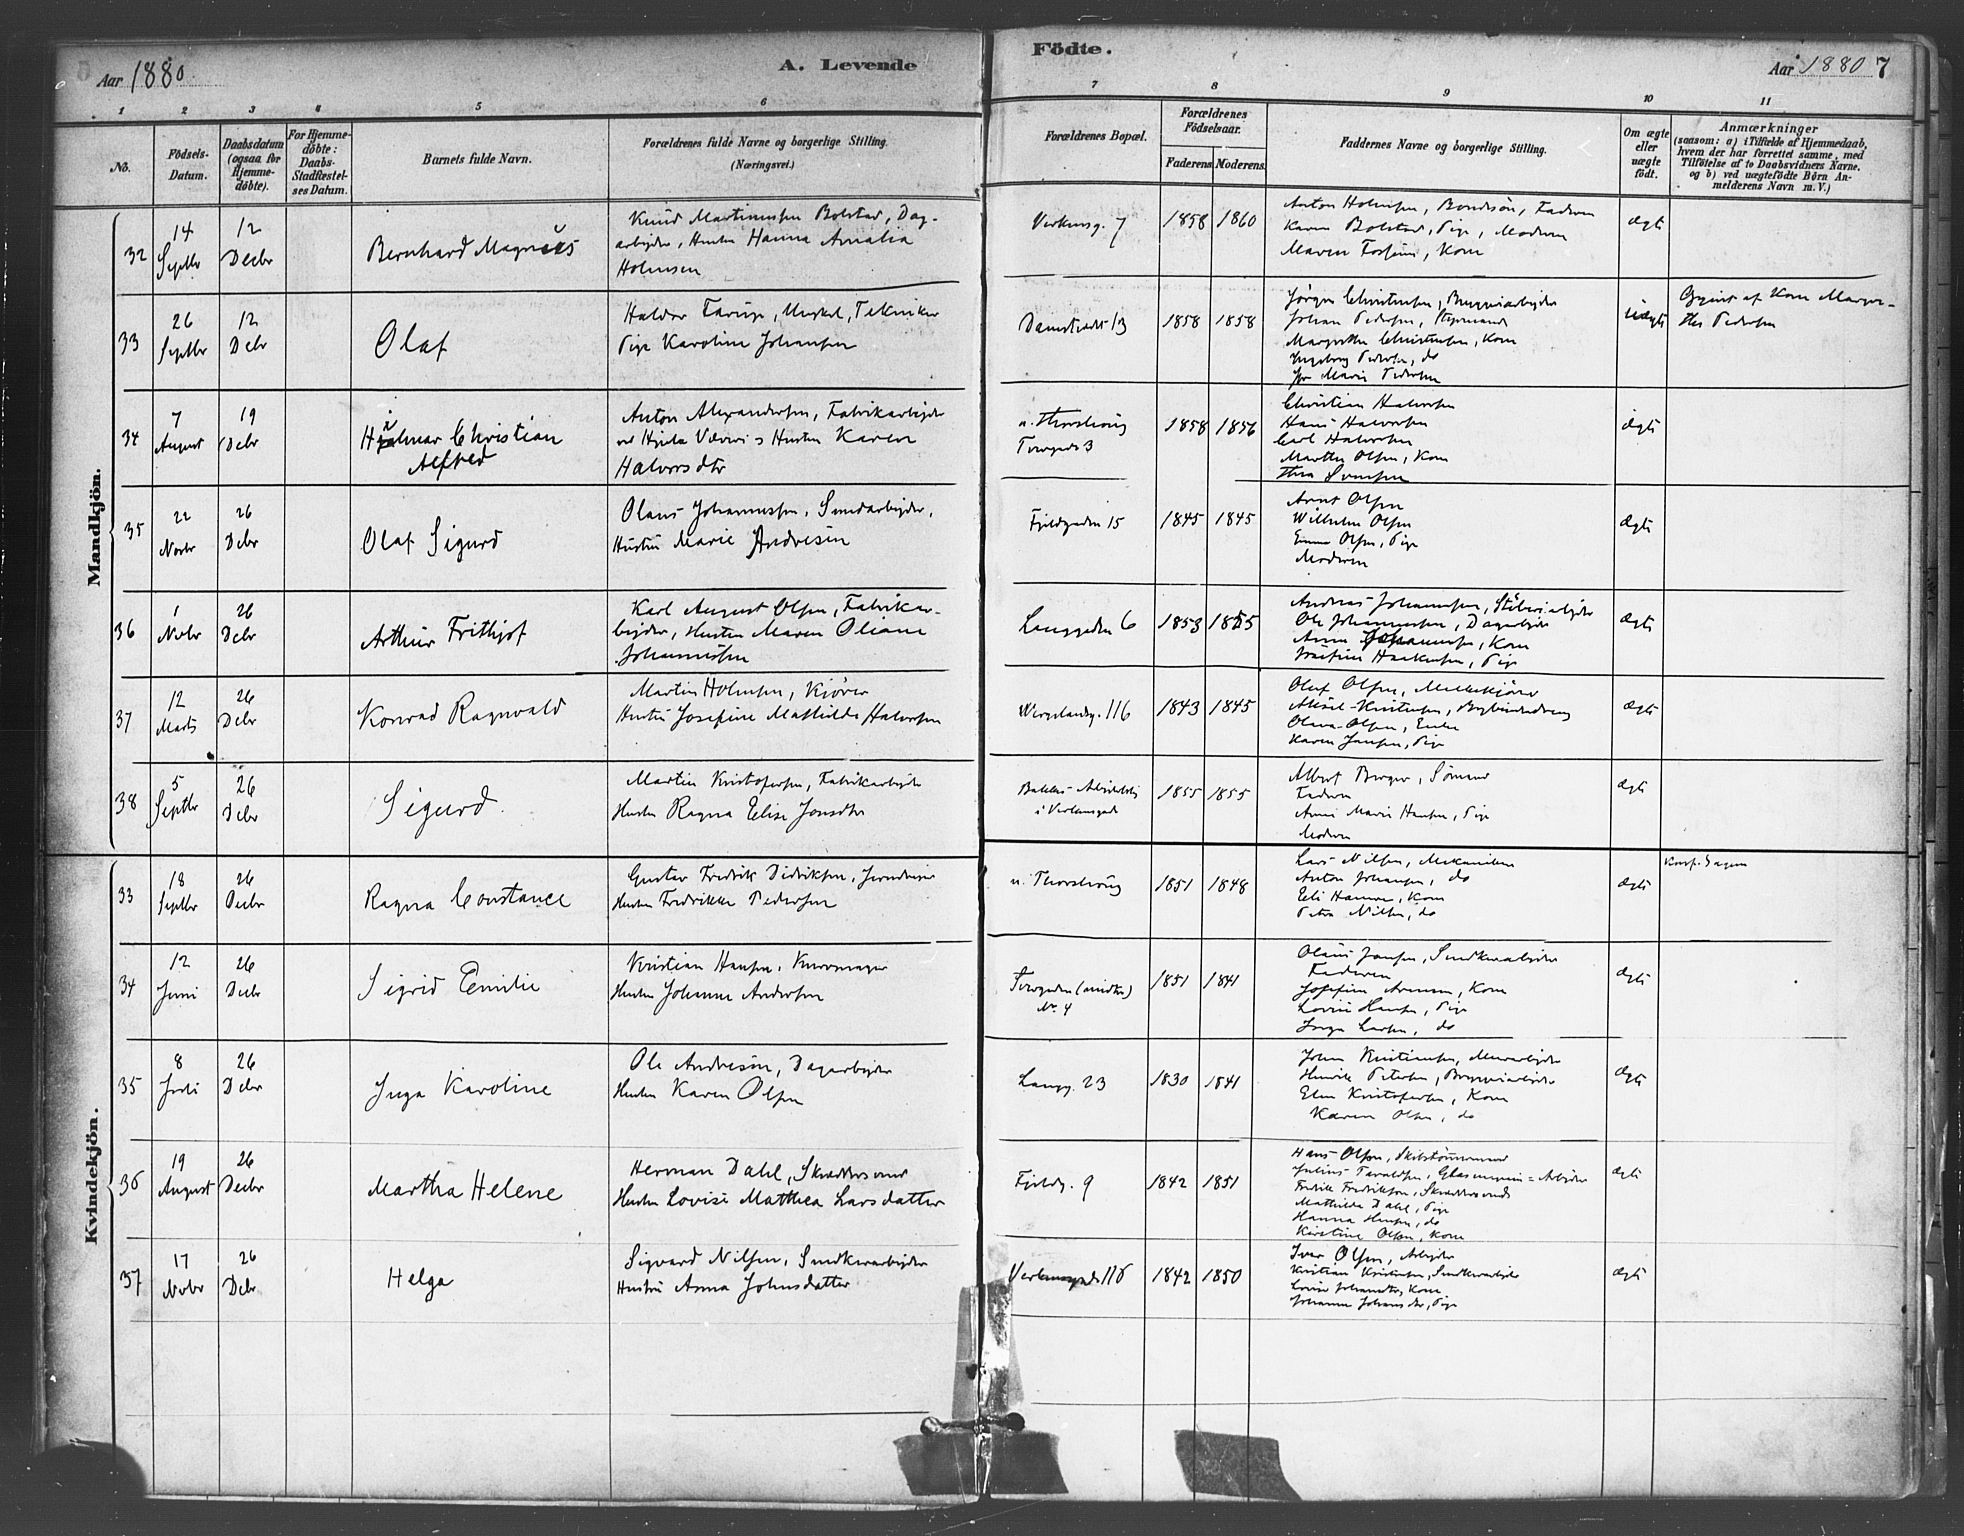 Aar 1880
A. Levende
Födte.
Aar 1880 7
1 2 3 4 5 6 7 8 9 10 11
No.
Födsels-
Datum.
Daabsdatum
(ogsaa for
Hjemme-
döbte).
For Hjemme-
döbte:
Daabs-
Stadfæstel-
ses Datum.
Barnets fulde Navn.
Forældrenes fulde Navne og borgerlige Stilling.
(Næringsvei.)
Forældrenes Bopæl.
Forældrenes
Födselsaar.
Faderens Moderens.
Faddernes Navne og borgerlige Stilling.
Om ægte
eller
uægte
födt.
Anmærkninger
(saasom: a) i Tilfælde af Hjemmedaab,
hvem der har forrettet samme, med
Tilföielse af to Daabsvidners Navne,
og b) ved uægtefödte Börn An-
melderens Navn m.V.)
Mandkjön.
32
14
Septbr
12
Decbr
Bernhard Magnus
Knud Martinussen Bolstad, Dag-
arbejder, Hustru Hanna Amalia
Holmsen
Verksg. 7
1858 1860
Anton Holmsen, Bondesön, Faderen
Karen Bolstad, Pige, Moderen
Maren Fossum, Kone
Ægte
33
26
Septbr
12
Debr
Olaf
Halvor Farup, Ungkarl, Tekniker
Pige Karoline Johansen
Damstredet 13
1858 1858
Jörgen Christensen, Bryggeriarbejder
Johan Pedersen, Styrmand
Margrethe Christensen, Kone
Ingeborg Pedersen, do
Marie Pedersen
uægte
af Kone Margre-
the Pedersen
34
7
August
19
Debr
Hjalmar Christian
Alfred
Anton Alexandersen, Fabrikarbejder
ved Hjula Væveri, Hustru Karen
Halvorsdtr
n. Thorshoug
Torvgade 3
1858 1856
Christian Halvorsen
Hans Halvorsen
Carl Halvorsen
Marthe Olsen, Kone
Thea Svensen
Ægte
35
22
Novbr
26
Debr
Olaf Sigurd
Olaus Johannessen, Smedarbejder,
Hustru Marie Andresen
Fjeldgaden 15
1845 1845
Arnt Olsen
Wilhelm Olsen
Emma Olsen, Pige
Moderen
Ægte
36
1
Novbr
26
Debr
Arthur Frithjof
Karl August Olsen, Fabrikar-
bejder, Hustru Maren Oliane
Johannessen
Langgaden 6
1853 1855
Andreas Johannessen, Støberiarbejder
Ole Johannessen, Dagarbejder
Anne Johannessen, Kone
Josefine Haakensen, Pige
Ægte
37
12
Marts
26
Debr
Konrad Ragnvald
Martin Holmsen, Kjører
Hustru Josefine Mathilde Halvorsen
Wergelandsg. 116
1843 1845
Oluf Olsen, Melkekjører
Aksel Kristensen,
Oliva Olsen, Enke
Karen Jansen, Pige
Ægte
38
5
Septbr
26
Debr
Sigurd
Martin Kristofersen, Fabrikarbejder
Hustru Ragna Elise Jonsdtr
Bakkes
i Verksgade
1855 1855
Albert Berger, Sømand
Faderen
Anne Marie Hansen, Pige
Moderen
Ægte
Kvindekjön.
33
18
Septbr
26
Decbr
Ragna Constance
Gustav Fredrik Didriksen, Jerndreier
Hustru Fredrikke Pedersen
n. Thorshoug
1851 1848
Lars Nilsen, Mekaniker
Anton Johansen, do
Eli Hansen, Kone
Petra Nilsen, do
Ægte
34
12
Juni
26
Decbr
Sigrid Emilie
Kristian Hansen, Kurvmager
Hustru Johanne Andersen
Torvgaden (midtre)
No 4
1851 1841
Olaus Jansen, Snedkerarbejder
Faderen
Josefine Arnesen, Kone
Lovise Hansen, Pige
Inga Larsen, do
Ægte
35
8
Juli
26
Debr
Inga Karoline
Ole Andresen, Dagarbejder
Hustru Karen Olsen
Langg. 23
1830 1841
Johan Kristiansen, Murarbejder
Henrik Petersen, Bryggeriarbejder
Elen Kristofersen, Kone
Karen Olsen, do
Ægte
36
19
August
26
Decbr
Martha Helene
Herman Dahl, Skræddersvend
Hustru Lovise Matthea Larsdatter
Fjeldg. 9
1842 1851
Hans Olsen, Skibstømmermand
Julius Taraldsen, Glasmagasin-Arbejder
Fredrik Fredriksen, Skræddersvend
Mathilde Dahl, Pige
Hanna Hansen, do
Kirstine Olsen, Kone
Ægte
37
17
Novbr
26
Debr
Helga
Sigvard Nilsen, Snedkerarbejder
Hustru Anna Johnsdatter
Verksgade 116
1842 1850
Iver Olsen, Arbejder
Kristian Kristensen, Snedkerarbejder
Lovise Johansdtr, Kone
Johanne Johansdtr, Pige
Ægte